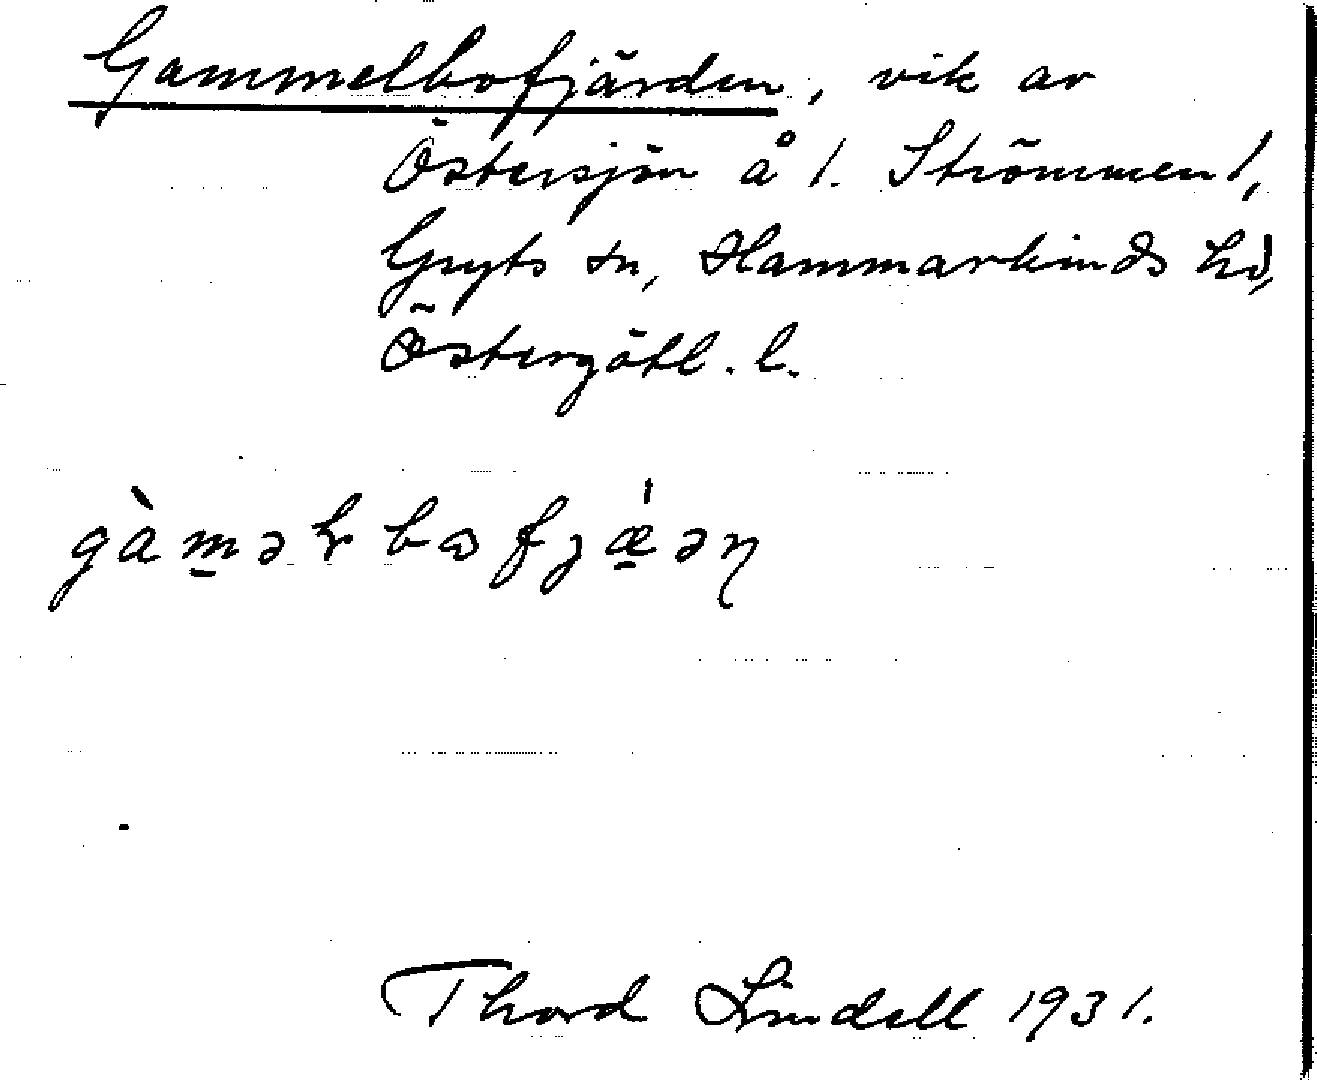 Gammelbofjärden, vik av
Östersjön å 1. Strömmen 1,
Gryts sn, Hammarkinds hd,
Östergötl. l.
gàmələbɷfjǽəη
Thord Lindell 1931.